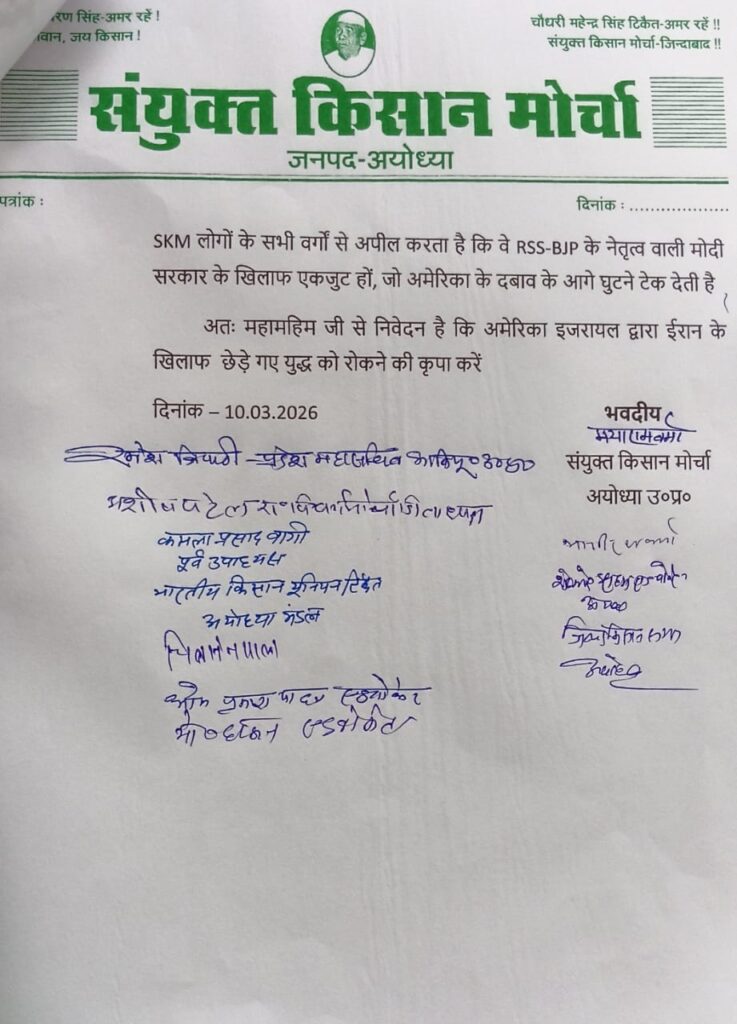 रण सिंह-अमर रहें !
वान, जय किसान !
चौधरी महेन्द्र सिंह टिकैत-अमर रहें !!
संयुक्त किसान मोर्चा-जिन्दाबाद !!
संयुक्त किसान मोर्चा
जनपद-अयोध्या
पत्रांक :
दिनांक : ....................
SKM लोगों के सभी वर्गों से अपील करता है कि वे RSS-BJP के नेतृत्व वाली मोदी
सरकार के खिलाफ एकजुट हों, जो अमेरिका के दबाव के आगे घुटने टेक देती है
अतः महामहिम जी से निवेदन है कि अमेरिका इजरायल द्वारा ईरान के
खिलाफ छेड़े गए युद्ध को रोकने की कृपा करें
दिनांक – 10.03.2026
भवदीय
मयाराम वर्मा
संयुक्त किसान मोर्चा
अयोध्या उ०प्र०
त्रिपाठी
पटेल
कमला प्रसाद बागी
पूर्व उपाध्यक्ष
भारतीय किसान यूनियन टिकैत
अयोध्या मंडल
ओम प्रकाश यादव एडवोकेट
एडवोकेट